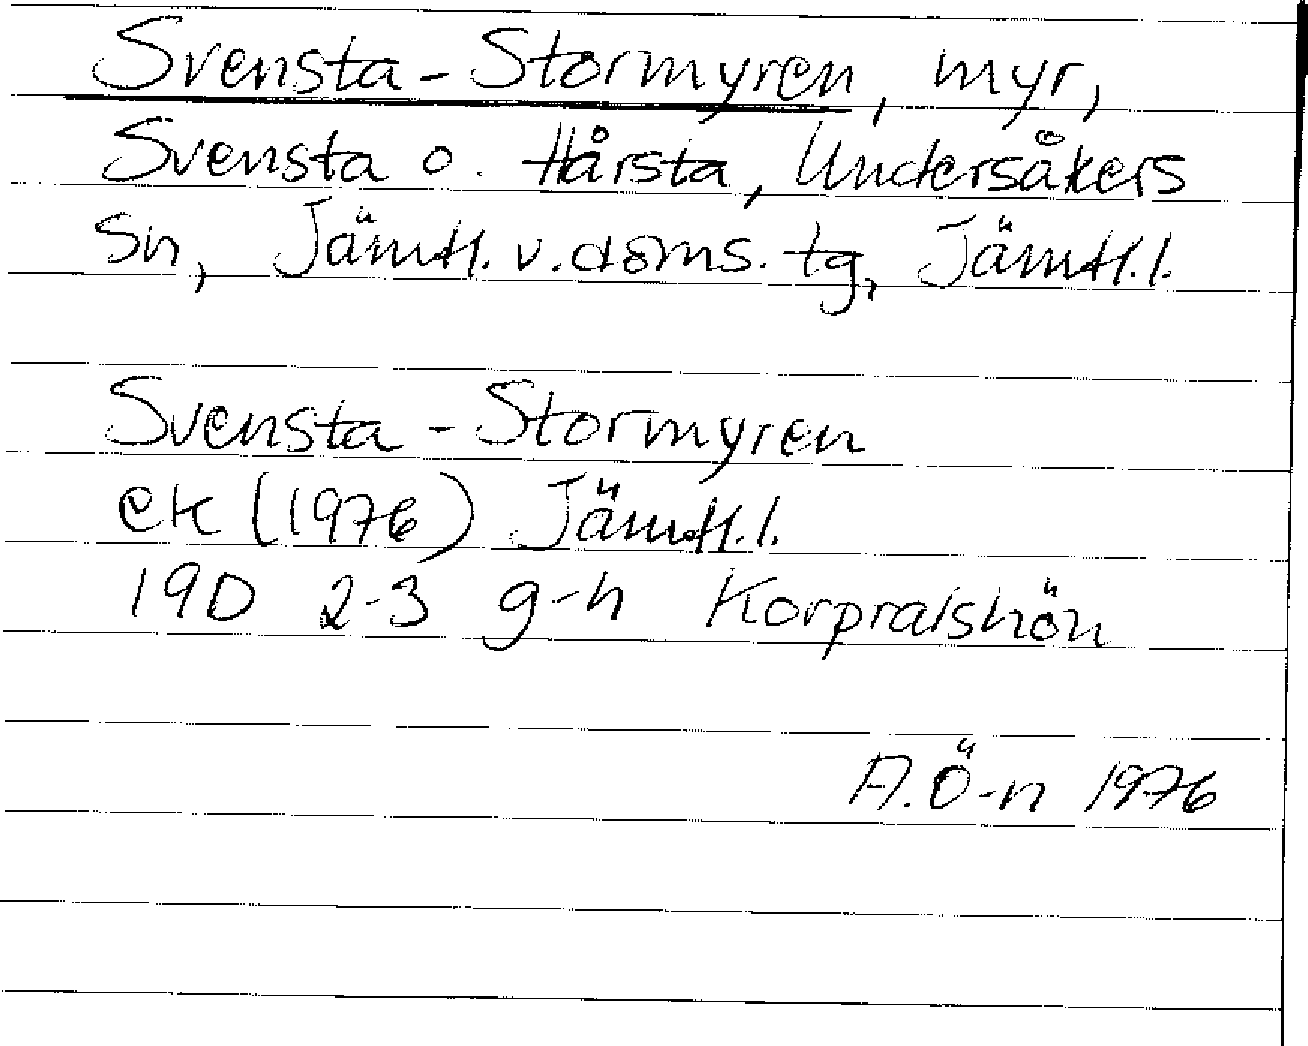 Svensta-Stormyren, myr,
Svensta o. Hårsta, Undersåkers
sn, Jämtl. v. doms. tg, Jämtl. l.
Svensta-Stormyren
ek (1976) Jämtl. l.
19D 2-3 g-h Korpralshön
A. Ö-n 1976